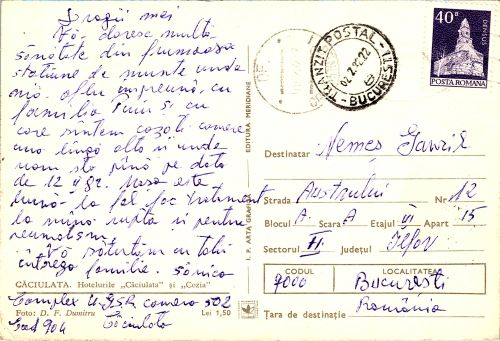 Dragii mei
Vă doresc multă
sănătate din frumoasa
stațiune de munte unde
mă aflu împreună cu
familia Puiu și cu
care sîntem cazați camere
una lîngă alta și unde
vom sta pînă pe data
de 12 II 82. Masa este
bună la fel fac tratament
la mîna ruptă și pentru
reumatism.
Vă sărutăm cu toții
întrega familie.
CĂCIULATA. Hotelurile „Căciulata" și „Cozia"
Complex U.G.S.R camera 502
Foto: D. F. Dumitru Lei 1,50
Cod 904 Căciulata
I. P. ARTA GRAFICĂ
EDITURA MERIDIANE
TRANZIT POSTAL - 11
BUCUREȘTI
40B
DENSUȘ
POSTA ROMANA
Destinatar Nemeș Gavril
Strada Austrului Nr 12
Blocul A. Scara A Etajul VI Apart 15
Sectorul II. Județul Ilfov
CODUL LOCALITATEA
7000 București
România
Țara de destinație